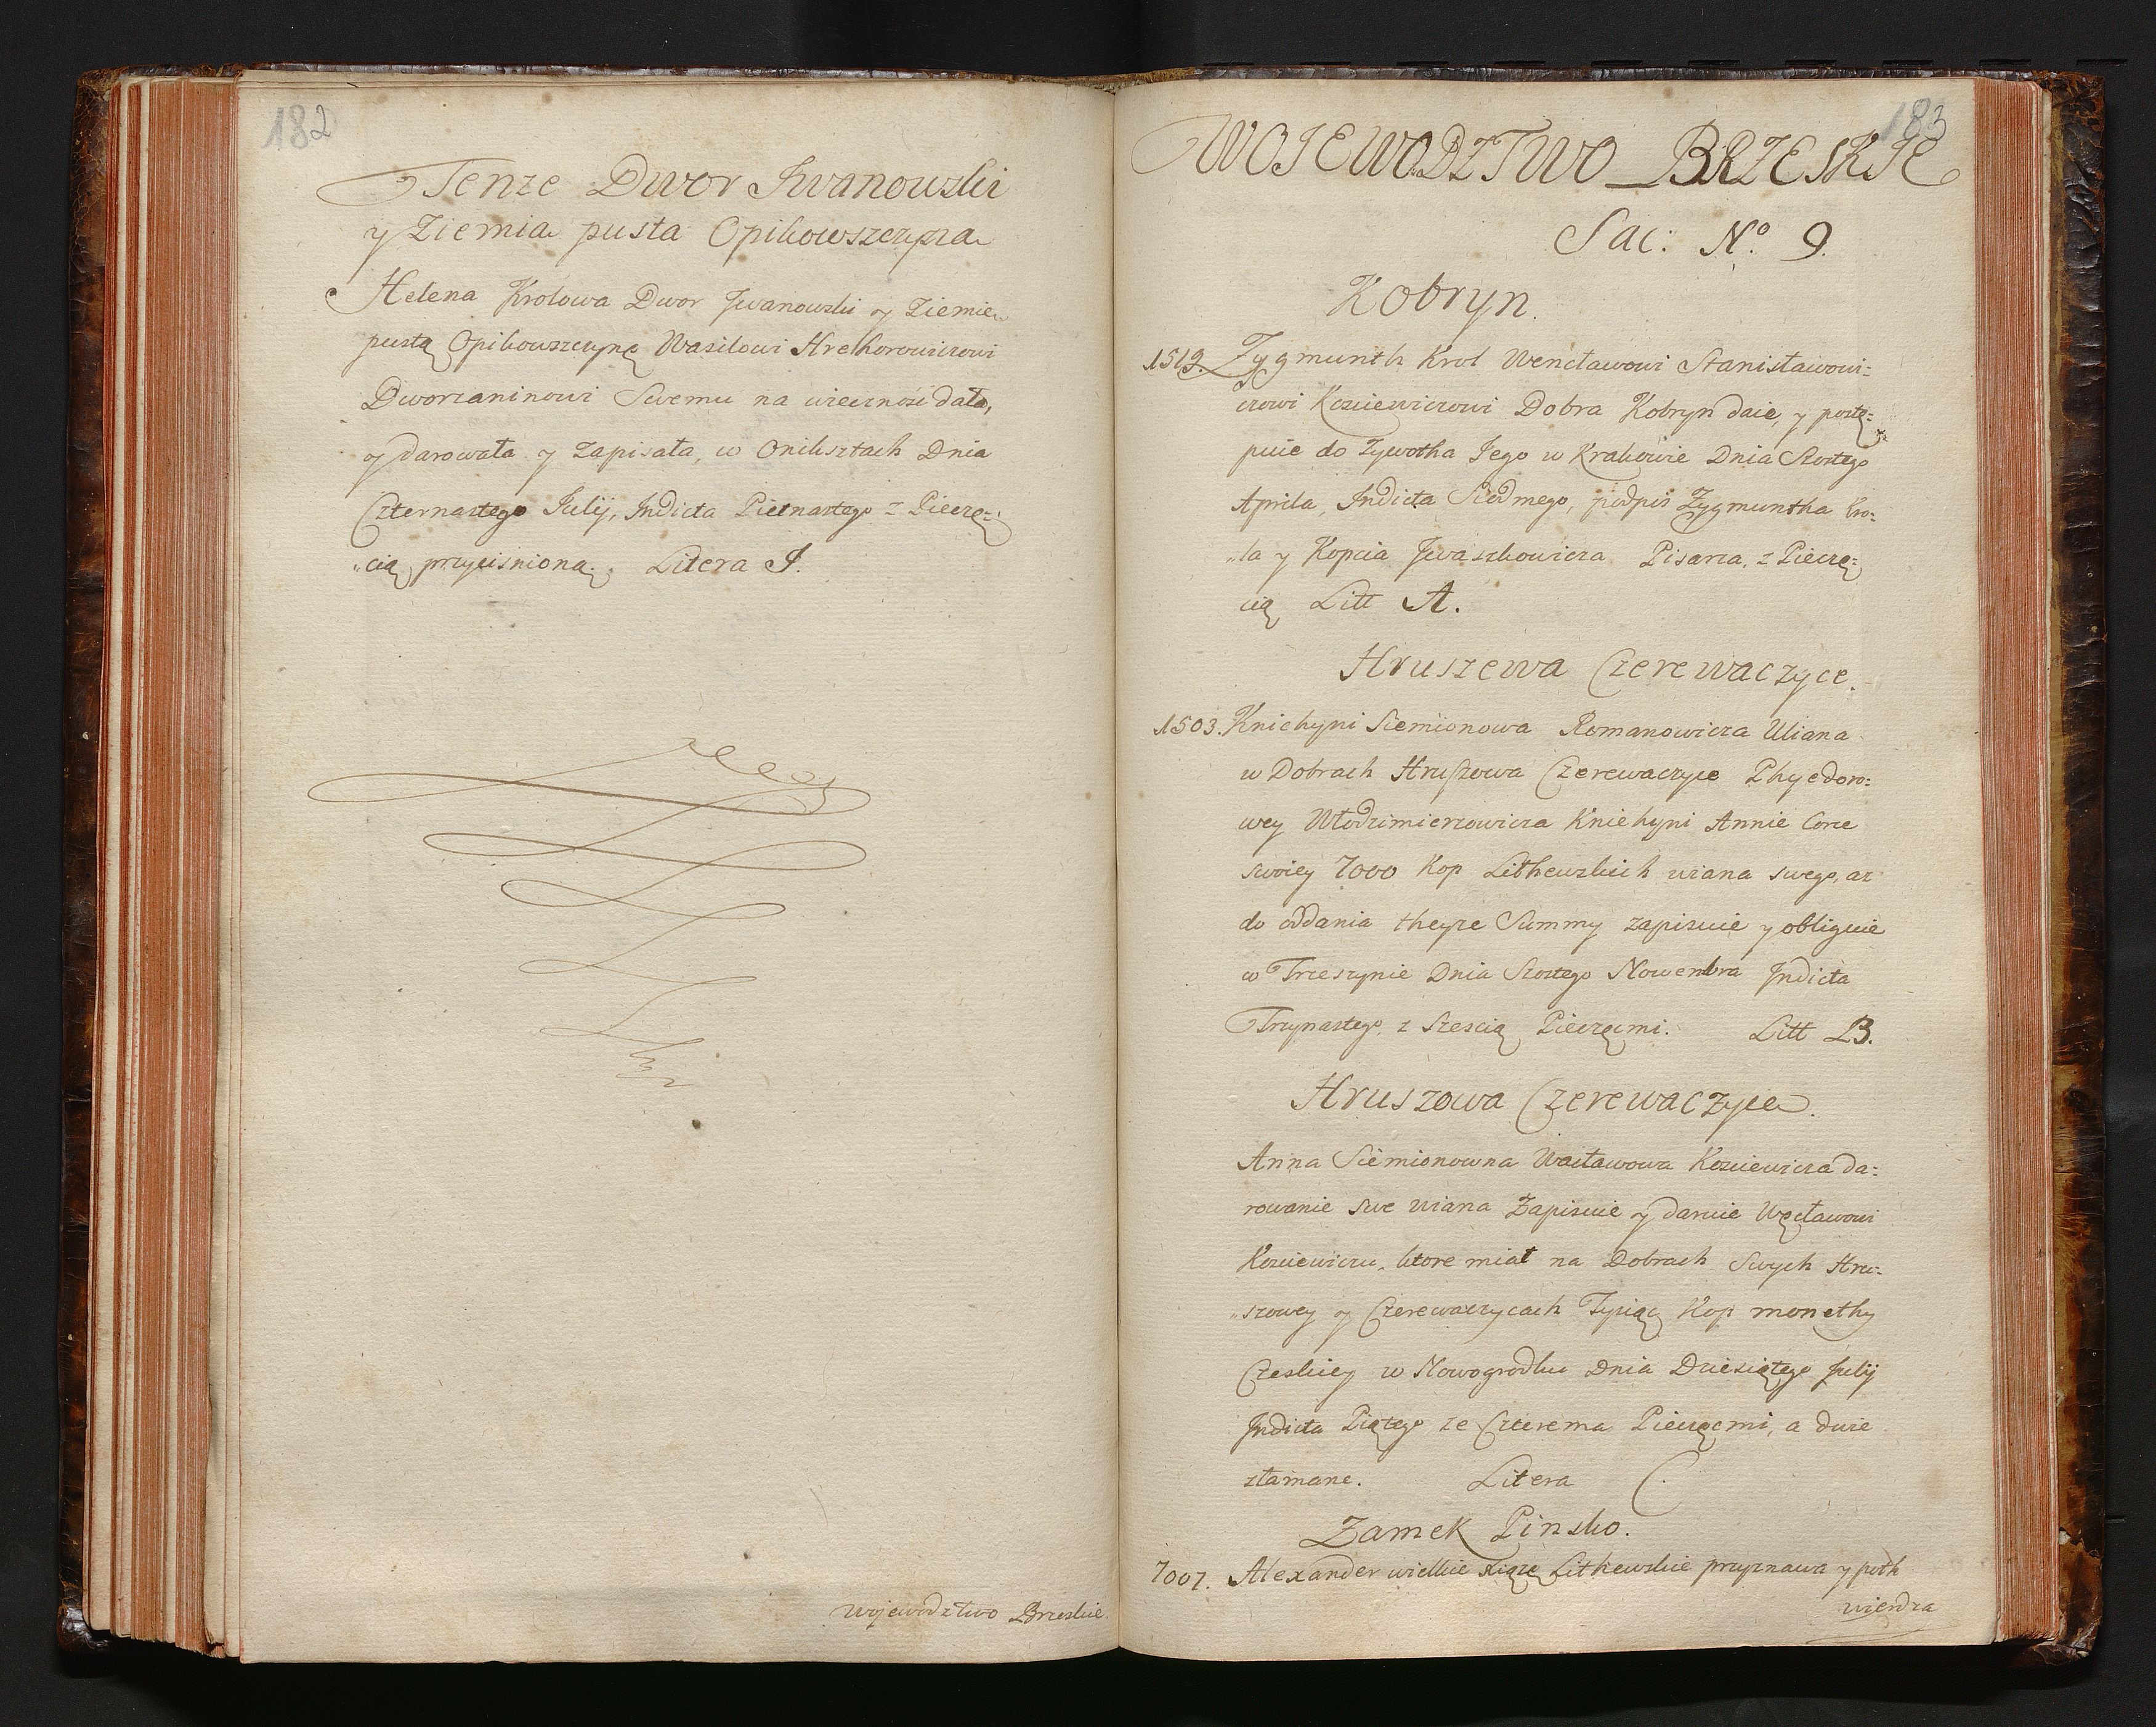 182
Tenze Dwor Iwanowski
y Ziemia pusta Opikowszczyzna
Helena Krolowa Dwor Iwanowski y Ziemię
pustą Opikowszczyznę Wasilowi Hrehorowiczowi
Dworzaninowi Swemu na wieczność dała,
y darowała y zapisała, w Oniksztach Dnia
Czternastego Julij, Indicta Pietnastego z Pieczę=
"cią przyciśnioną. Litera I.
Wojewodztwo Brzeskie
183
WOJEWODZTWO BRZESKIE
Sac: No. 9.
Kobryn.
1519. Zygmunth Krol Wencławowi Stanisławowi=
czowi Kosciewiczowi Dobra Kobryn daie, y postę=
puie do Zywotha Jego w Krakowie Dnia Szostego
Aprila, Indicta Siodmego, podpis Zygmuntha Kro=
"la y Kopcia Iwaszkowicza Pisarza, z Pieczę=
cią Litt A.
Hruszewa Czerewaczyce.
1503. Kniehyni Siemionowa Romanowicza Uliana
w Dobrach Hruszowa Czerewaczyce Phyedoro=
wey Włodzimierzowicza Kniehyni Annie Corce
swoiey 1000 Kop Lithewskich wiana swego, az
do oddania theyze Summy zapisuie y obliguie
w Trzeszynie Dnia Szostego Nowembra Indicta
Trzynastego, z Szescią Pieczęcmi. Litt B.
Hruszowa Czerewaczyce.
Anna Siemionowna Wacławowa Kosciewicza da=
rowanie swe wiana Zapisuie y daruie Węcławowi
Kosciewiczu, ktore miał na Dobrach Swych Hru=
"szowey y Czerewaczycach Tysiąc Kop monethy
Czeskiey w Nowogrodku Dnia Dziesiątego Julij
Indicta Piątego ze Czterema Pieczęcmi, a dwie
złamane. Litera C.
Zamek Pinsko.
7007. Alexander wielkie xiąże Lithewskie przyznawa y poth
wierdza